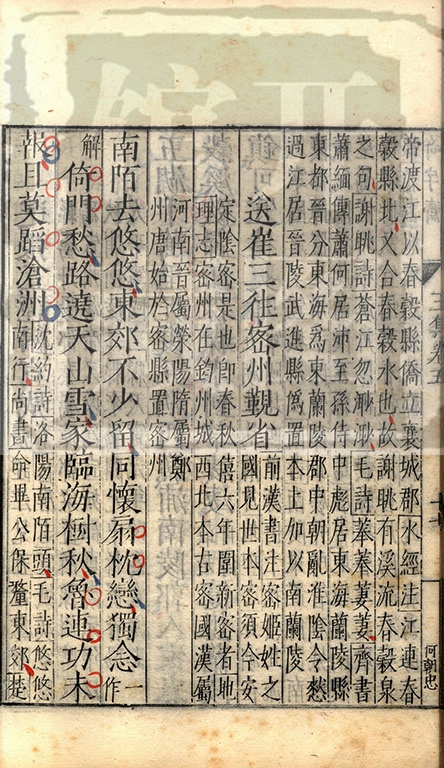 帝渡江以春穀縣僑立襄城郡水經注江連春
穀縣北又合春穀水也故謝朓有溪流春穀泉
之句謝眺詩蒼江忽渺渺毛詩菶菶萋萋齊書
蕭緬傳蕭何居沛至孫侍中彪居東海蘭陵縣
東都晉分東海爲東蘭陵郡中朝亂淮陰令
過江居晉陵武進縣爲置本土加以南蘭陵
送崔三往密州覲省
前漢書注密姬姓之
國見世本密須今安
定陰密是也即春秋僖六年圍新密者地
理志密州在鈞州城西北本古密國漢屬
河南晉屬滎陽隋屬鄭
州唐始於密縣置密州
南陌去悠悠東郊不少留同懷扇枕戀獨念一作
解倚門愁路遶天山雪家臨海樹秋魯連功未
報且莫蹈滄洲
沈約詩洛陽南陌頭毛詩悠悠
南行尚書命畢公保釐東郊楚